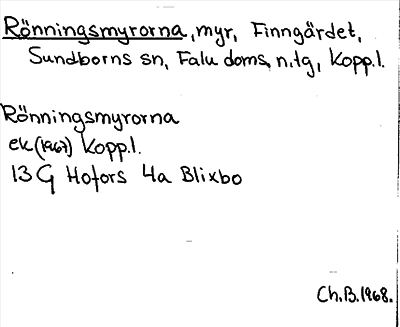 Rönningsmyrorna, myr, Finngärdet,
Sundborns sn, Falu doms. n.tg, Kopp.l.
Rönningsmyrorna
ek (1967) Kopp.l.
13G Hofors 4a Blixbo
Ch.B.1968.